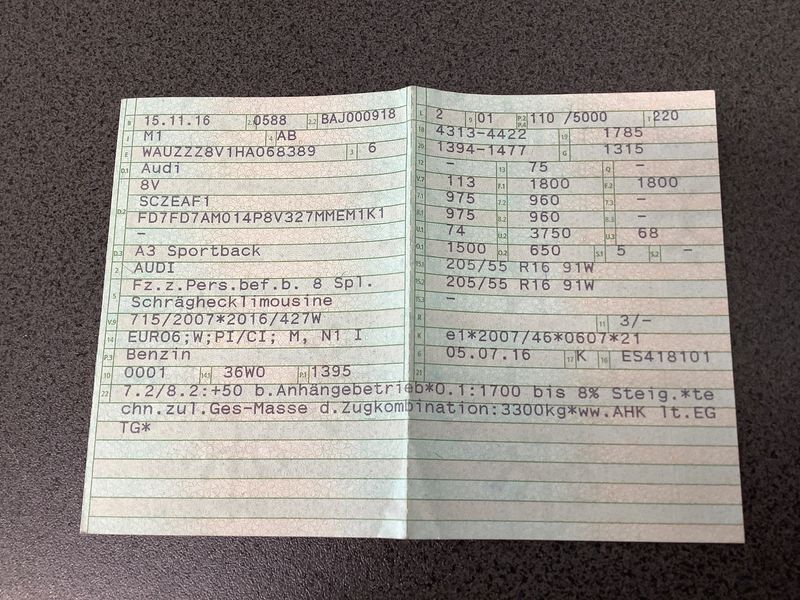 B 15.11.16 2.1 0588 2.2 BAJ000918
J M1 4 AB
E WAUZZZ8V1HA068389 3 6
D.1 Audi
8V
D.2 SCZEAF1
FD7FD7AM014P8V327MMEM1K1
-
D.3 A3 Sportback
2 AUDI
5 Fz.z.Pers.bef.b. 8 Spl.
Schräghecklimousine
V.9 715/2007*2016/427W
14 EURO6;W;PI/CI; M, N1 I
P.3 Benzin
10 0001 14.1 36W0 P.1 1395
L 2 9 01 P.2 P.4 110 /5000 T 220
18 4313-4422 19 1785
20 1394-1477 G 1315
12 - 13 75 Q -
V.7 113 F.1 1800 F.2 1800
7.1 975 7.2 960 7.3 -
8.1 975 8.2 960 8.3 -
U.1 74 U.2 3750 U.3 68
O.1 1500 O.2 650 S.1 5 S.2 -
15.1 205/55 R16 91W
15.2 205/55 R16 91W
15.3 -
R 11 3/-
K e1*2007/46*0607*21
6 05.07.16 17 K 16 ES418101
21
22 7.2/8.2:+50 b.Anhängebetrieb*O.1:1700 bis 8% Steig.*te
chn.zul.Ges-Masse d.Zugkombination:3300kg*ww.AHK lt.EG
TG*